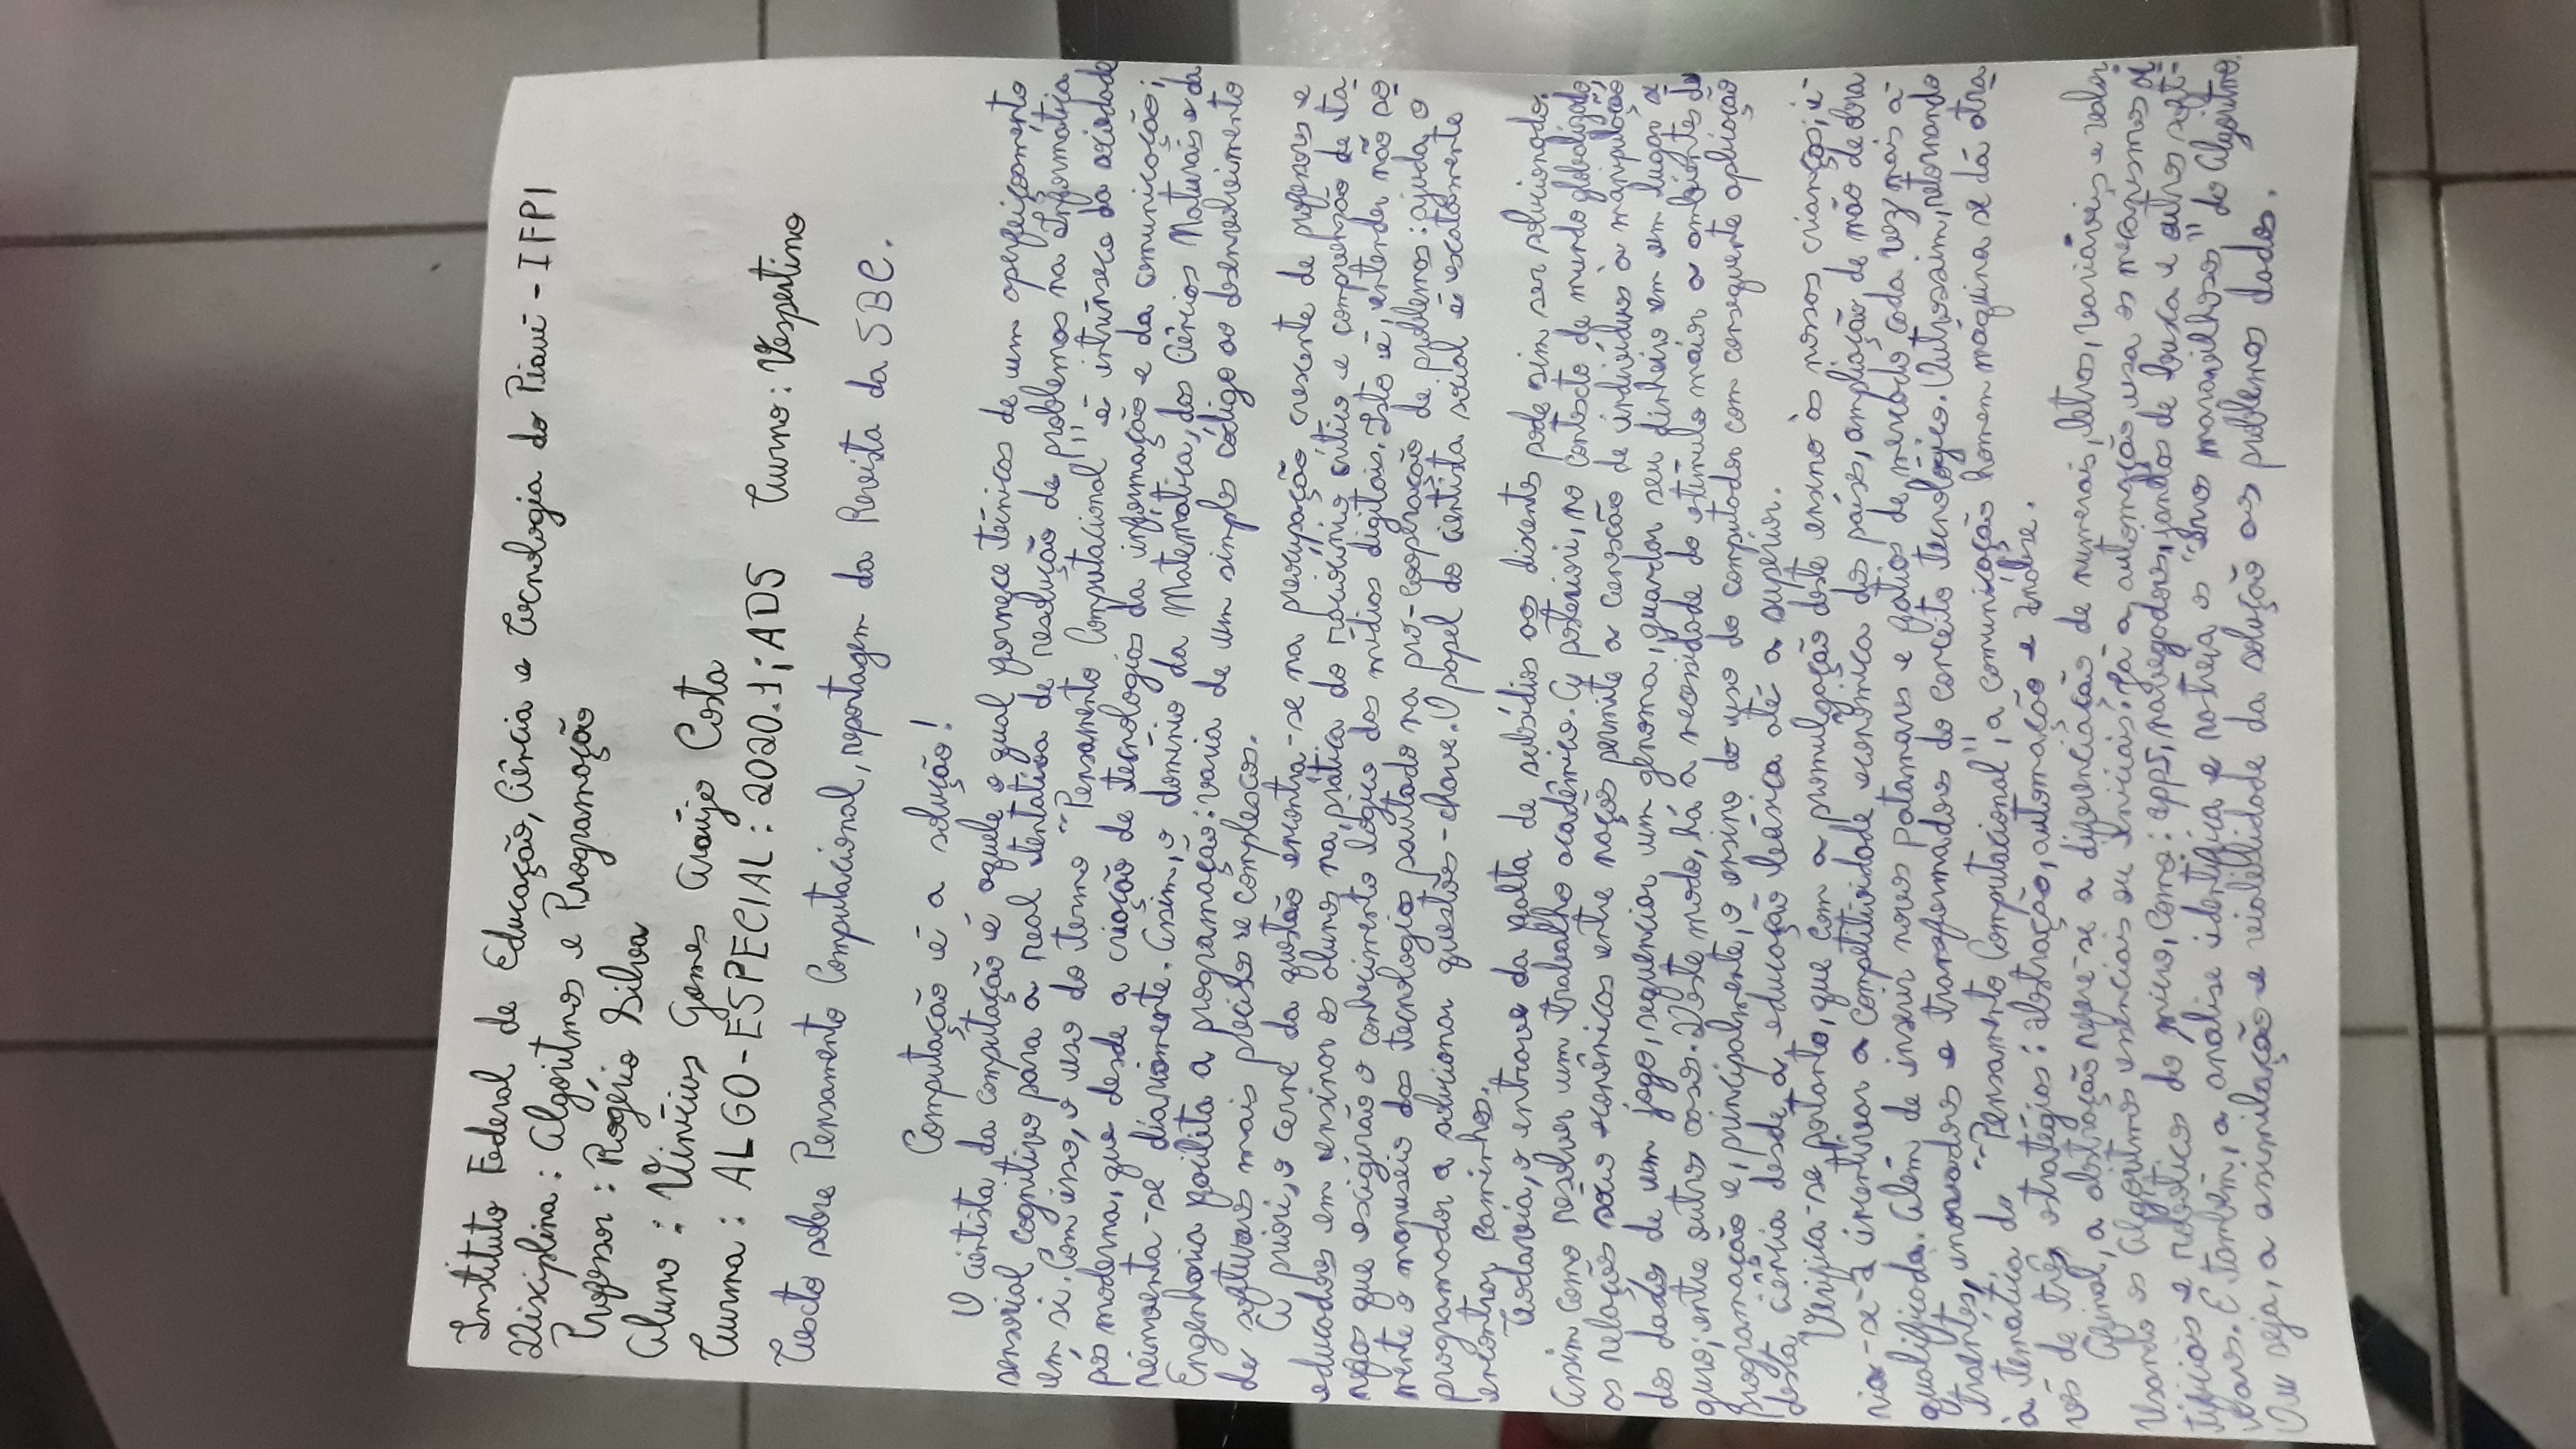 Instituto Federal de Educação, Ciência e Tecnologia do Piauí - IFPI
Disciplina: Algoritmos e Programação
Professor: Rogério Silva
Aluno: Vinícius Gomes Araújo Costa
Turma: ALGO-ESPECIAL: 2020.1; ADS Turno: Vespertino
Texto sobre Pensamento Computacional, reportagem da Revista da SBC.
Computação é a solução!
O cientista da computação é aquele o qual fornece técnicas de um aperfeiçoamento
sensorial cognitivo para a real tentativa de resolução de problemas na Informática
em si. Com isso, o uso do termo "Pensamento Computacional" é intrínseco da sociedade
pós moderna, que desde a criação de tecnologias da informação e da comunicação;
reinventa-se diariamente. Assim, o domínio da Matemática, das Ciências Naturais e da
Engenharia facilita a programação: varia de um simples código ao desenvolvimento
de softwares mais precisos e complexos.
A priori, o cerne da questão encontra-se na preocupação crescente de professores e
educadores em ensinar os alunos na prática do raciocínio crítico e compreensão de ta
refas que exigirão o conhecimento lógico das mídias digitais. Isto é, entender não so-
mente o manuseio das tecnologias pautado na pro-cooperação de problemas: ajuda o
programador a solucionar questões-chave. O papel do cientista social é exatamente
encontrar caminhos.
Todavia, o entrave da falta de subsídios aos discentes pode sim ser solucionado.
Assim como resolver um trabalho acadêmico. A posteriori, no contexto de mundo globalizado,
as relações sócio econômicas entre nações permite a conexão de indivíduos à manipulação
dos dados de um jogo, sequenciar um genoma, guardar seu dinheiro em um lugar se
guro; entre outros casos. Deste modo, há a necessidade do estímulo maior a ambientes de
programação e, principalmente, o ensino do uso do computador com consequente aplicação
desta ciência desde a educação básica até a superior.
Verifica-se, portanto, que com a promulgação deste ensino às nossas crianças; i-
ria-se-á incentivar a competitividade econômica dos países, ampliação de mão de obra
qualificada. Além de inserir novos patamares e fatias de mercado cada vez mais a-
traentes, inovadores e transformadores do conceito tecnológico. Outrossim, retornando
à temática do "Pensamento Computacional", a comunicação homem máquina se dá atra
vés de três estratégias: abstração, automação e análise.
Afinal, a abstração refere-se a diferenciação de numerais, letras, variáveis e valor
Usando os Algoritmos essenciais ou iniciais. Já a automação usa os mecanismos ar
tificiais e robóticos do micro, como: apps, navegadores, janelas de busca e outros soft-
wares. E também, a análise identifica e rastreia os "erros maravilhosos" do Algoritmo.
Ou seja, a assimilação e viabilidade da solução aos problemas dados.